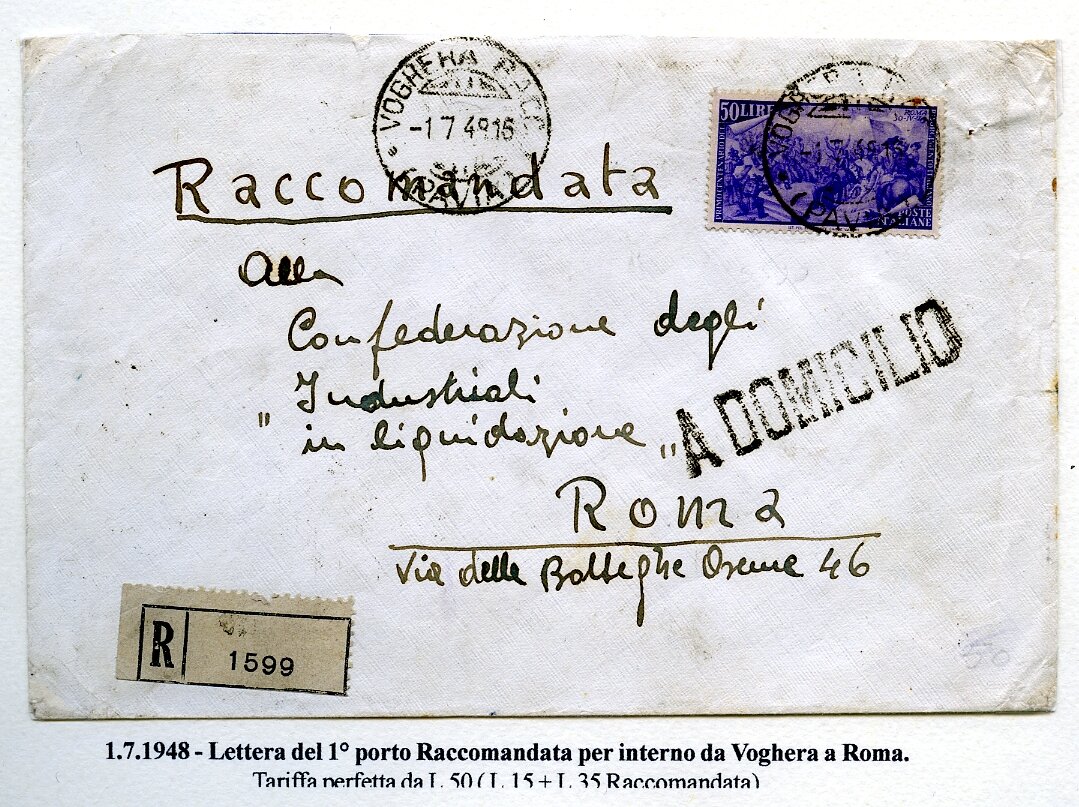 VOGHERA RACC.
-1 7 48 16
(PAVIA)
Raccomandata
50 LIRE
ROMA
30-IV-49
POSTE
ITALIANE
-1 7 48 16
(PAVIA)
Alla
Confederazione degli
Industriali
" in liquidazione "
A DOMICILIO
Roma
Via delle Botteghe Oscure 46
R
1599
50
1.7.1948 - Lettera del 1° porto Raccomandata per interno da Voghera a Roma.
Tariffa perfetta da L. 50 ( L. 15 + L. 35 Raccomandata)